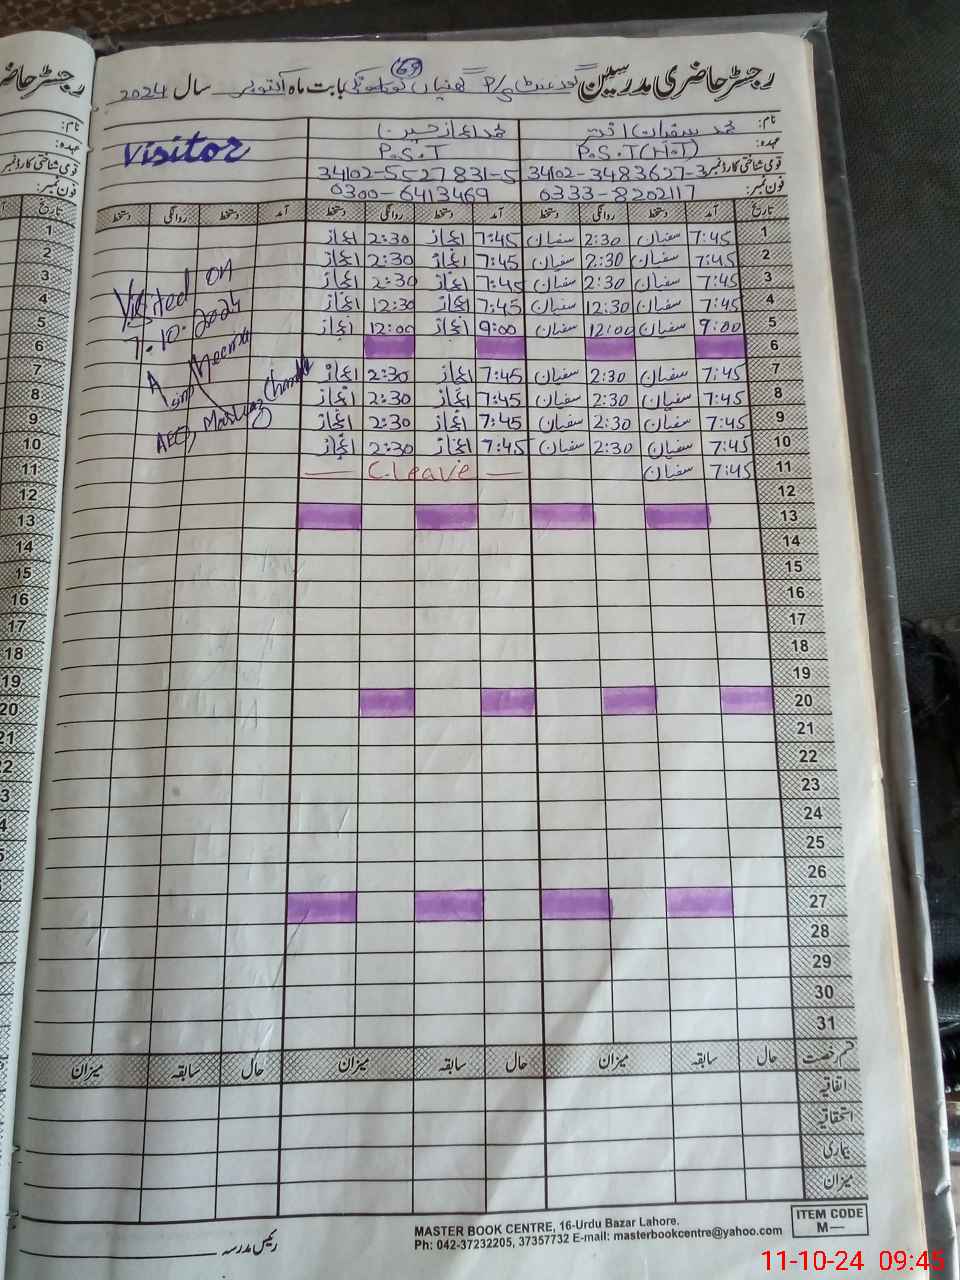 رجسٹر حاضری مدرسین گورنمنٹ P/S بابت ماہ اکتوبر سال 2024
69
نام: محمد سفیان محمد اعجاز حسین
عہدہ: P.S.T (H.T) P.S.T Visitor
قومی شناختی کارڈ نمبر 34102-3483627-3 34102-5527831-5
فون نمبر: 0333-8202117 0300-6413469
تاریخ آمد دستخط روانگی دستخط آمد دستخط روانگی دستخط آمد دستخط روانگی دستخط
1 7:45 سفیان 2:30 سفیان 7:45 اعجاز 2:30 اعجاز
2 7:45 سفیان 2:30 سفیان 7:45 اعجاز 2:30 اعجاز
3 7:45 سفیان 2:30 سفیان 7:45 اعجاز 2:30 اعجاز
4 7:45 سفیان 12:30 سفیان 7:45 اعجاز 12:30 اعجاز
5 9:00 سفیان 12:00 سفیان 9:00 اعجاز 12:00 اعجاز
6
7 7:45 سفیان 2:30 سفیان 7:45 اعجاز 2:30 اعجاز
8 7:45 سفیان 2:30 سفیان 7:45 اعجاز 2:30 اعجاز
9 7:45 سفیان 2:30 سفیان 7:45 اعجاز 2:30 اعجاز
10 7:45 سفیان 2:30 سفیان 7:45 اعجاز 2:30 اعجاز
11 7:45 سفیان C.Leave
12
13
14
15
16
17
18
19
20
21
22
23
24
25
26
27
28
29
30
31
Visited on
7.10.2024
قسم رخصت حال سابقہ میزان حال سابقہ میزان حال سابقہ میزان
اتفاقیہ
استحقاقیہ
بیماری
میزان
رئیس مدرسہ
MASTER BOOK CENTRE, 16-Urdu Bazar Lahore.
Ph: 042-37232205, 37357732 E-mail: masterbookcentre@yahoo.com
ITEM CODE
M—
11-10-24 09:45